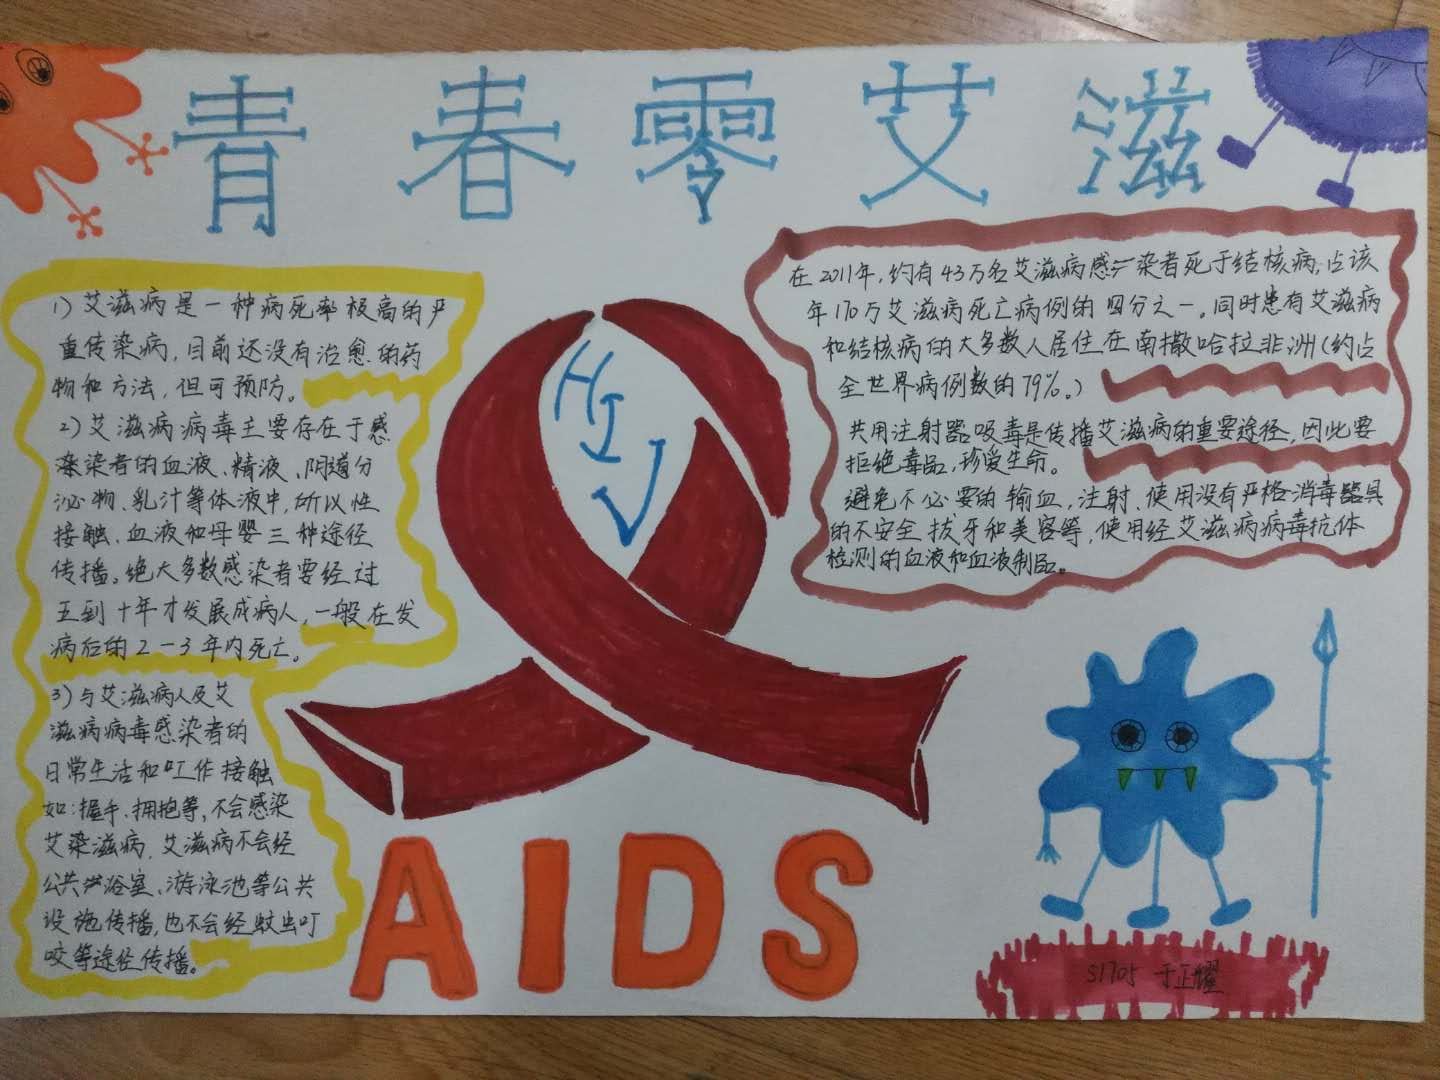 青春零艾滋
1)艾滋病是一种病死率极高的严
重传染病,目前还没有治愈的药
物和方法,但可预防。
2)艾滋病病毒主要存在于感
染者的血液、精液、阴道分
泌物、乳汁等体液中,所以性
接触、血液和母婴三种途径
传播。绝大多数感染者要经过
五到十年才发展成病人,一般在发
病后的2-3年内死亡。
3)与艾滋病人及艾
滋病病毒感染者的
日常生活和工作接触
如:握手、拥抱等,不会感染
艾滋病,艾滋病不会经
公共浴室、游泳池等公共
设施传播,也不会经蚊虫叮
咬等途径传播。
HIV
AIDS
在2011年,约有43万名艾滋病感染者死于结核病,占该
年170万艾滋病死亡病例的四分之一。同时患有艾滋病
和结核病的大多数人居住在南撒哈拉非洲(约占
全世界病例数的79%。)
共用注射器吸毒是传播艾滋病的重要途径,因此要
拒绝毒品,珍爱生命。
避免不必要的输血,注射、使用没有严格消毒器具
的不安全拔牙和美容等,使用经艾滋病病毒抗体
检测的血液和血液制品。
S1705 于正耀